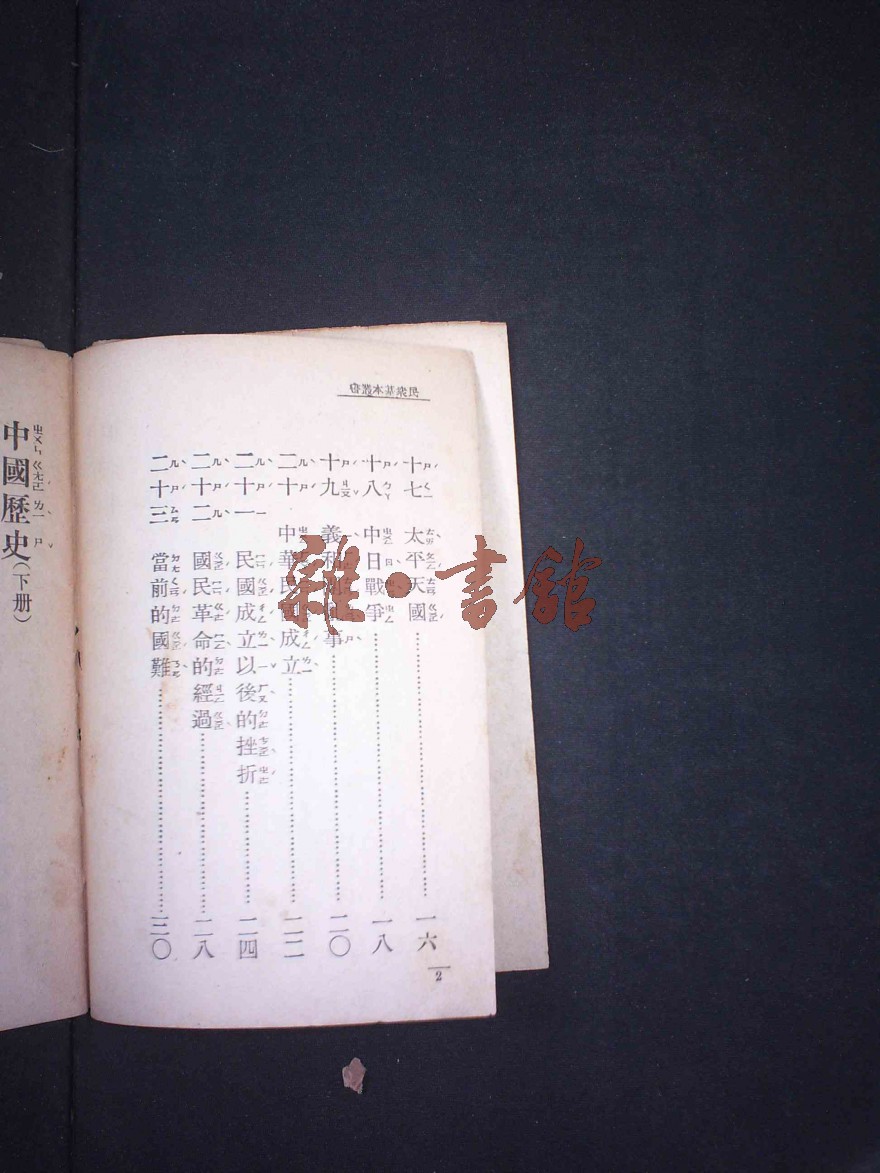 民眾基本叢書
十七 太平天國……一六
十八 中日戰爭……一八
十九 義和 事……二〇
二十 中華民國成立……二二
二十一 民國成立以後的挫折……二四
二十二 國民革命的經過……二八
二十三 當前的國難……三〇
2
中國歷史（下册）
雜·書館